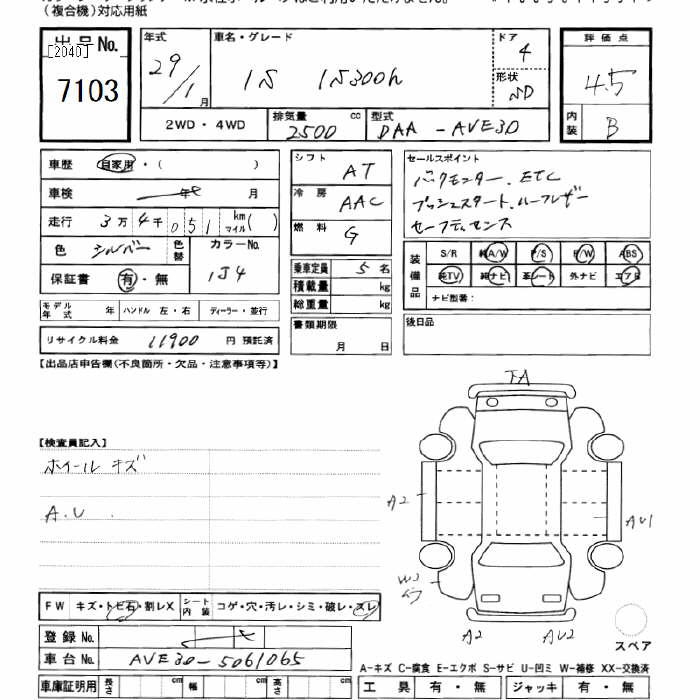 （複合機）対応用紙
出品No.
[2040]
7103
年式
29/1月
車名・グレード
IS IS300h
ドア
4
形状
SD
評価点
4.5
内装
B
2WD・4WD
排気量 2500 cc
型式 DAA-AVE30
車歴 自家用・( )
車検 年 月
走行 3万4千051 km マイル( )
色 シルバー
色替
カラーNo.
1J4
保証書 有・無
モデル年式 年 ハンドル 左・右 ディーラー・並行
リサイクル料金 11900 円 預託済
シフト AT
冷房 AAC
燃料 G
乗車定員 5名
積載量 kg
総重量 kg
書類期限
月 日
セールスポイント
バックモニター、ETC
プッシュスタート、ルーフレザー
セーフティセンス
装備品
S/R 純A/W P/S P/W ABS
純TV 純ナビ 革シート 外ナビ エアB
ナビ型番：
後日品
【出品店申告欄(不良箇所・欠品・注意事項等)】
【検査員記入】
ホイール キズ
A.U.
FA
A2
AU1
W3
A2
AU2
スペア
FW キズ・トビ石・割レX
シート内装 コゲ・穴・汚レ・シミ・破レ・スレ
登録No.
車台No. AVE30-5061065
車庫証明用 長さ cm 幅 cm 高さ cm
A-キズ C-腐食 E-エクボ S-サビ U-凹ミ W-補修 XX-交換済
工具 有・無 ジャッキ 有・無